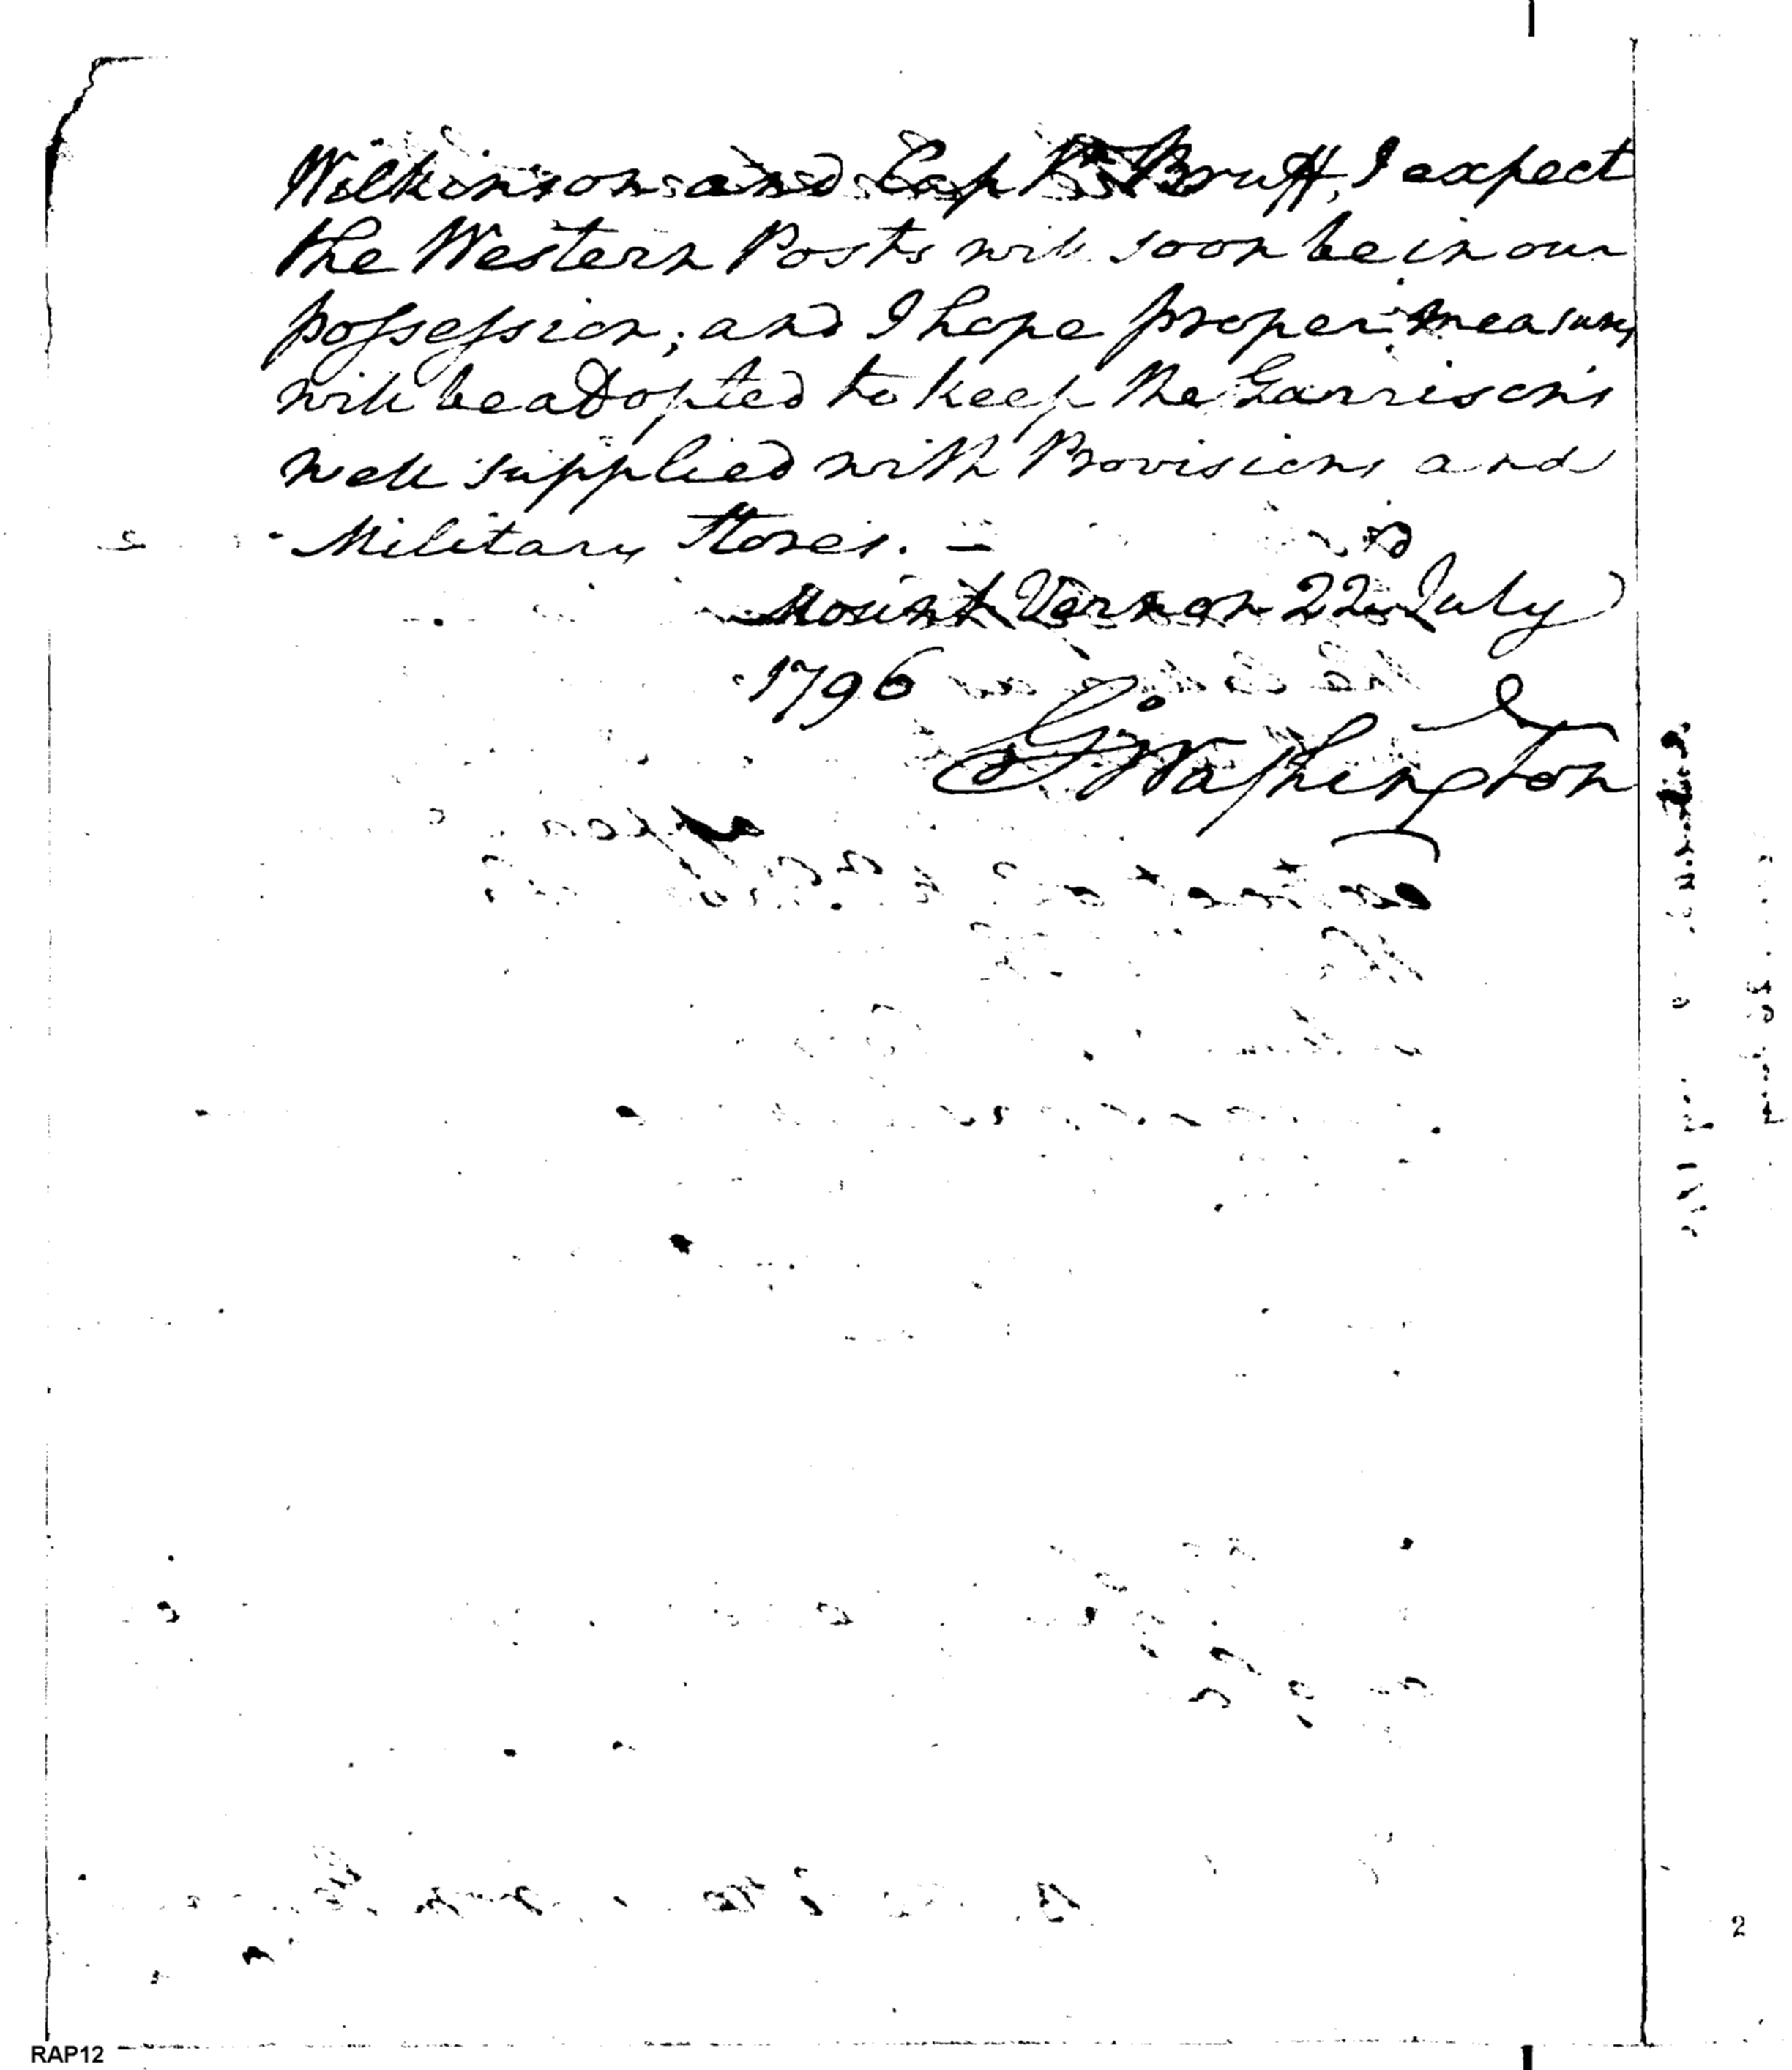 Wilkinson and Capt. Bruff, I expect
the Western Posts will soon be in our
possession; and I hope proper measures
will be adopted to keep the Garrisons
well supplied with Provisions and
Military Stores. —
Mount Vernon 22d July
1796
G. Washington
2
RAP12